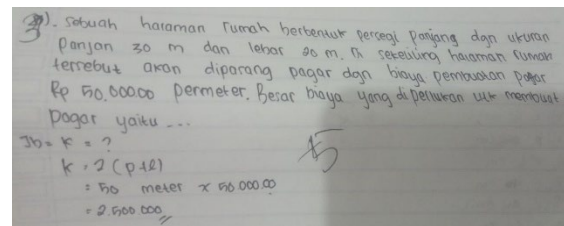 3). Sebuah haraman rumah berbentuk percegi panjang dgn ukuran
panjan 30 m dan lebar 20 m. Di sekeliling haraman rumah
tersebut akan dipasang pagar dgn biaya pembuatan pagar
Rp 50.000.00 permeter. Besar biaya yang diperlukan utk membuat
pagar yaitu ...
Jb = K = ?
K = 2 (p+l)
= 50 meter x 50.000.00
= 2.500.000